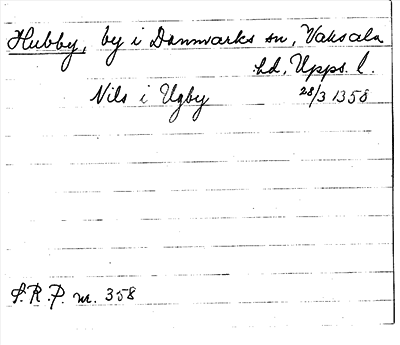 Hubby, by i Danmarks sn, Vaksala
hd, Upps. l.
Nils i Ugby 28/3 1358
S.R.P. nr. 358